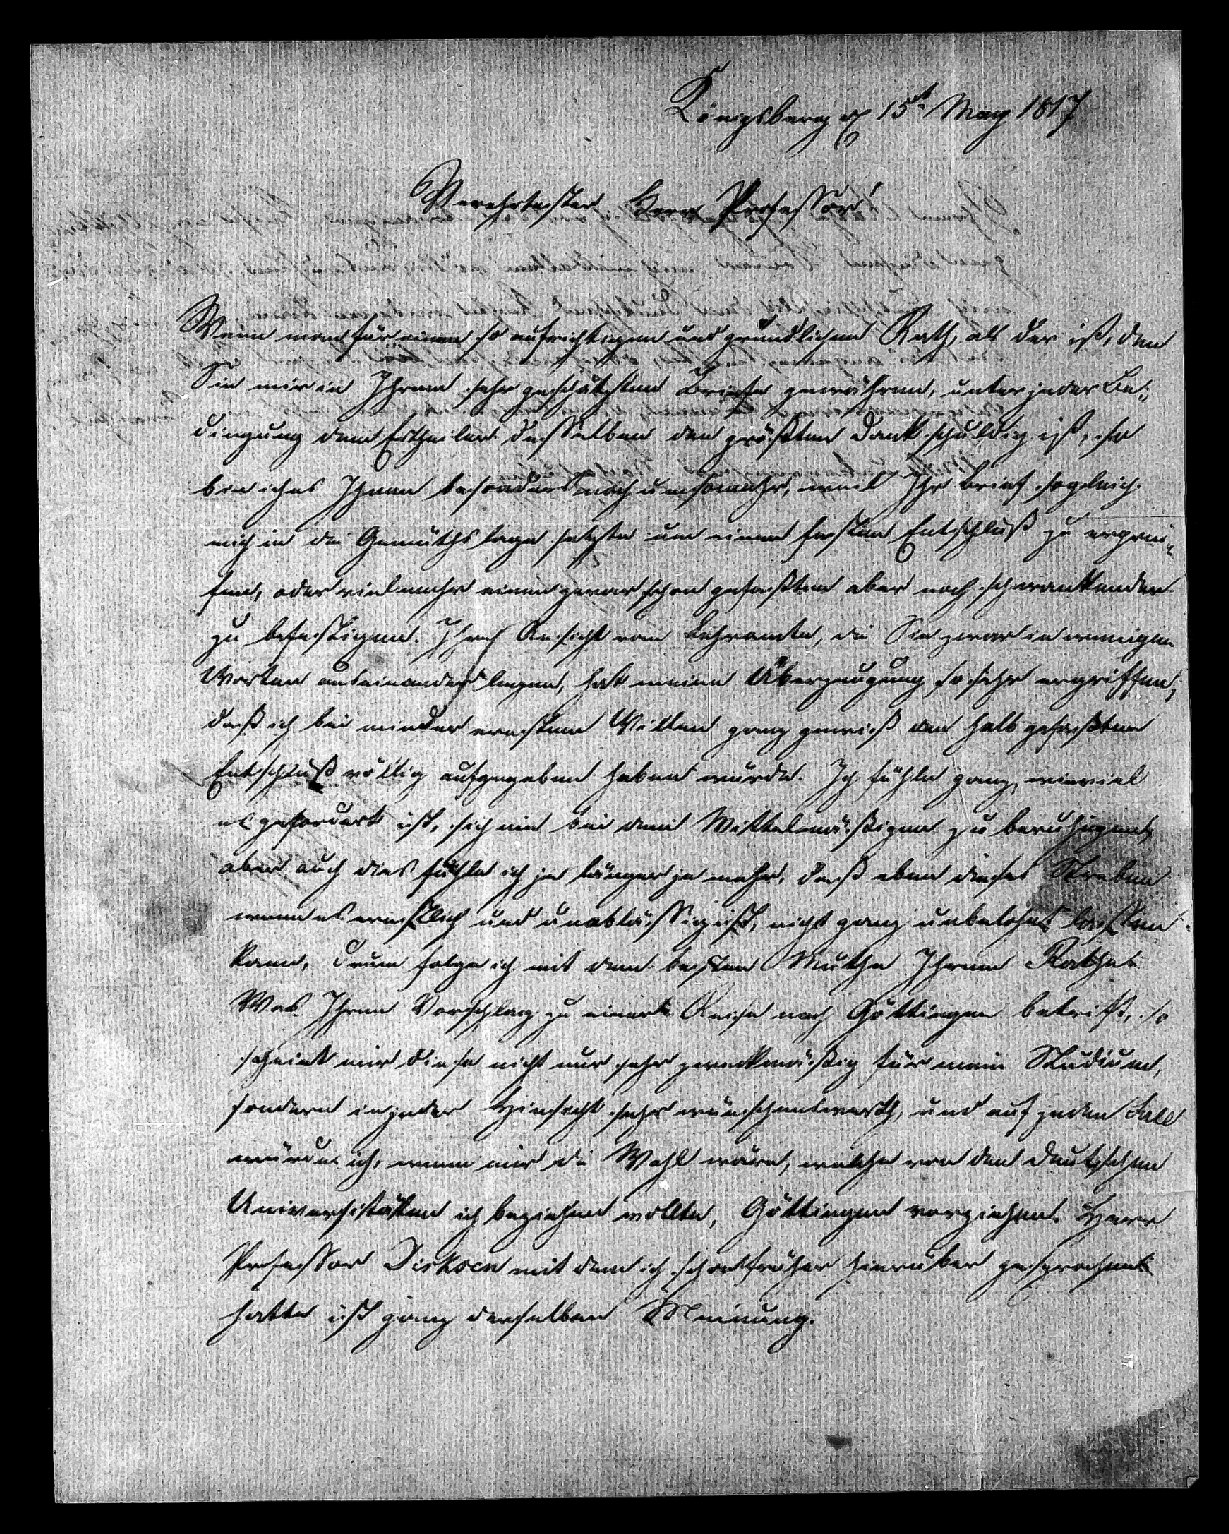 Königsberg d 15t May 1817
Verehrtester Herr Professor!
Wenn man für einen so aufrichtigen und gründlichen Rath, als der ist, den
Sie mir in Ihrem sehr geschätzten Briefe gewähren, unter jeder Be-
dingung dem Ertheiler desselben den größten Dank schuldig ist, so
bin ich es Ihnen besonders noch umsomehr, weil Ihr Brief sogleich
mich in die Gemüthslage setzte um einen festen Entschluß zu ergrei-
fen, oder vielmehr einen zwar schon gefaßten aber noch schwankenden
zu befestigen. Ihre Ansicht vom Lehramte, die Sie zwar in wenigen
Worten auseinander legen, hat meine Überzeugung so sehr ergriffen,
daß ich bei minder ernstem Willen ganz gewiß den halb gefaßten
Entschluß völlig aufgegeben haben würde. Ich fühle ganz, wieviel
es gefordert ist, sich nie bei dem Mittelmäßigen zu beruhigen,
aber auch dies fühle ich je länger je mehr, daß eben dieses Streben
wenn es ernstlich und unabläßig ist, nicht ganz unbelohnt lassen
kann, drum folge ich mit dem besten Muthe Ihrem Rathe.
Was Ihren Vorschlag zu einer Reise nach Göttingen betrifft, so
scheint mir diese nicht nur sehr zweckmäßig für mein Studium,
sondern in jeder Hinsicht sehr wünschenswerth, und auf jeden Fall
würde ich, wenn mir die Wahl wäre, welche von den deutschen
Universitäten ich beziehen wollte, Göttingen vorziehen. Herr
Professor Dirksen mit dem ich schon früher hierüber gesprochen
hatte ist ganz derselben Meinung.